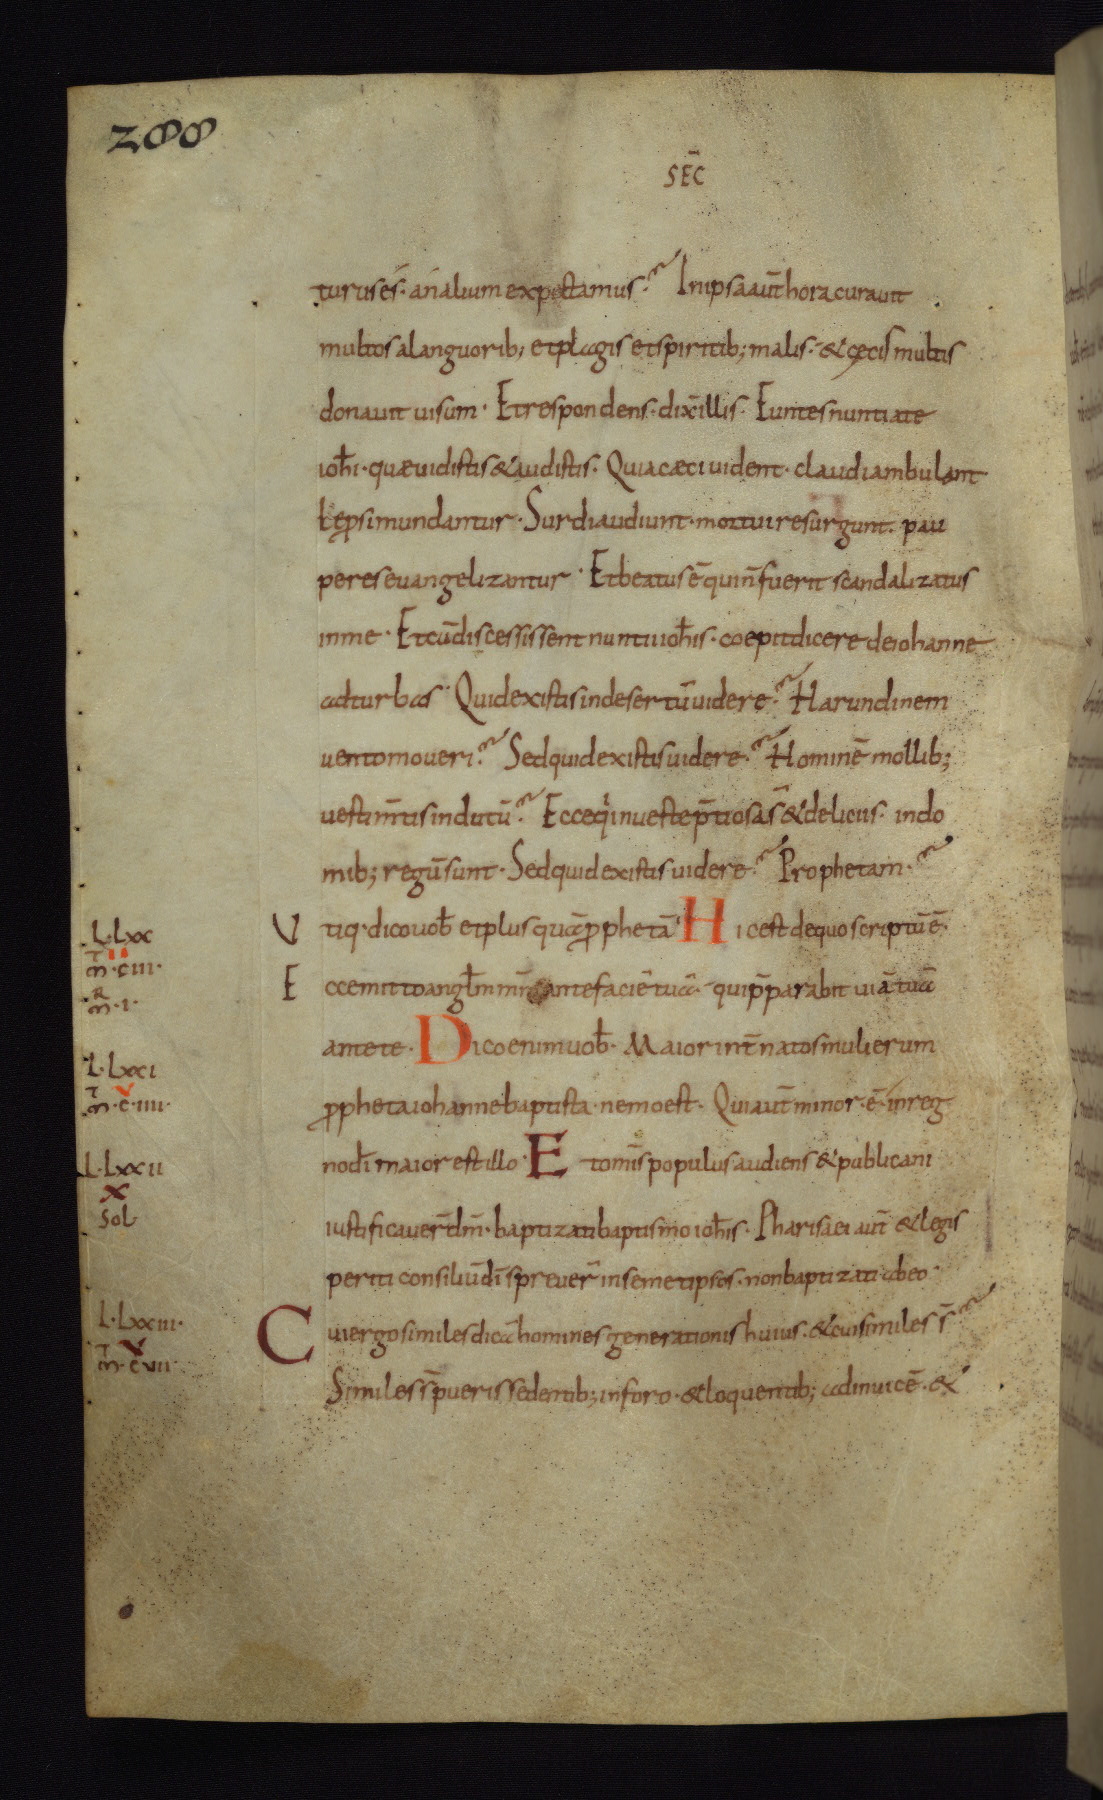 200
SEC̄
turuses̄· ań alium expectamus·~ In ipsa aut̄ hora curauit
multos a languorib; et plagis et spiritib; malis· & cęcis multis
donauit uisum· Et respondens· dix̄ illis· Euntes nuntiate
ioh̄i· quae uidistis & audistis· Quia caeci uident· claudi ambulant
lep̄si mundantur· Surdi audiunt· mortui resurgunt· pau
peres euangelizantur· Et beatus ē qui n̄ fuerit scandalizatus
in me· Et cū discessissent nuntii ioh̄is· coepit dicere de iohanne
ad turbas· Quid existis in desertū uidere·~ Harundinem
uento moueri·~ Sed quid existis uidere·~ Hominē mollib;
uestim̄tis indutū·~ Ecce q̇ in ueste p̄tiosa s̄ & deliciis· in do
mib; regū sunt· Sed quid existis uidere·~ Prophetam·~
L·Lxx
V tiq· dico uob̄ et plus quā p̄phetā· Hic est de quo scriptū ē·
T
m̄·ciii·
E cce mitto angl̄m m̄m̄ ante faciē tuā· qui p̄parabit uiā tuā
R
m̄·i·
ante te· Dico enim uob̄· Maior int̄ natos mulierum
L·Lxxi
T
m̄·c̄·iiii·
p̄pheta iohanne baptista· nemo est· Qui aut̄ minor· ē· in reg
L·Lxxii
x
Sol
no dī maior est illo· Et om̄is populus audiens & publicani
iustificauer̄ dm̄· baptizati baptismo ioh̄is· Pharisaei aut̄ & legis
periti consiliū dī spreuer̄ in semetipsos· non baptizati ab eo·
L·Lxxiii·
T
m̄·c̄vii·
C ui ergo similes dicā homines generationis huius· & cui similes s̄·~
Similes s̄ pueris sedentib; in foro· & loquentib; ad inuicē· &